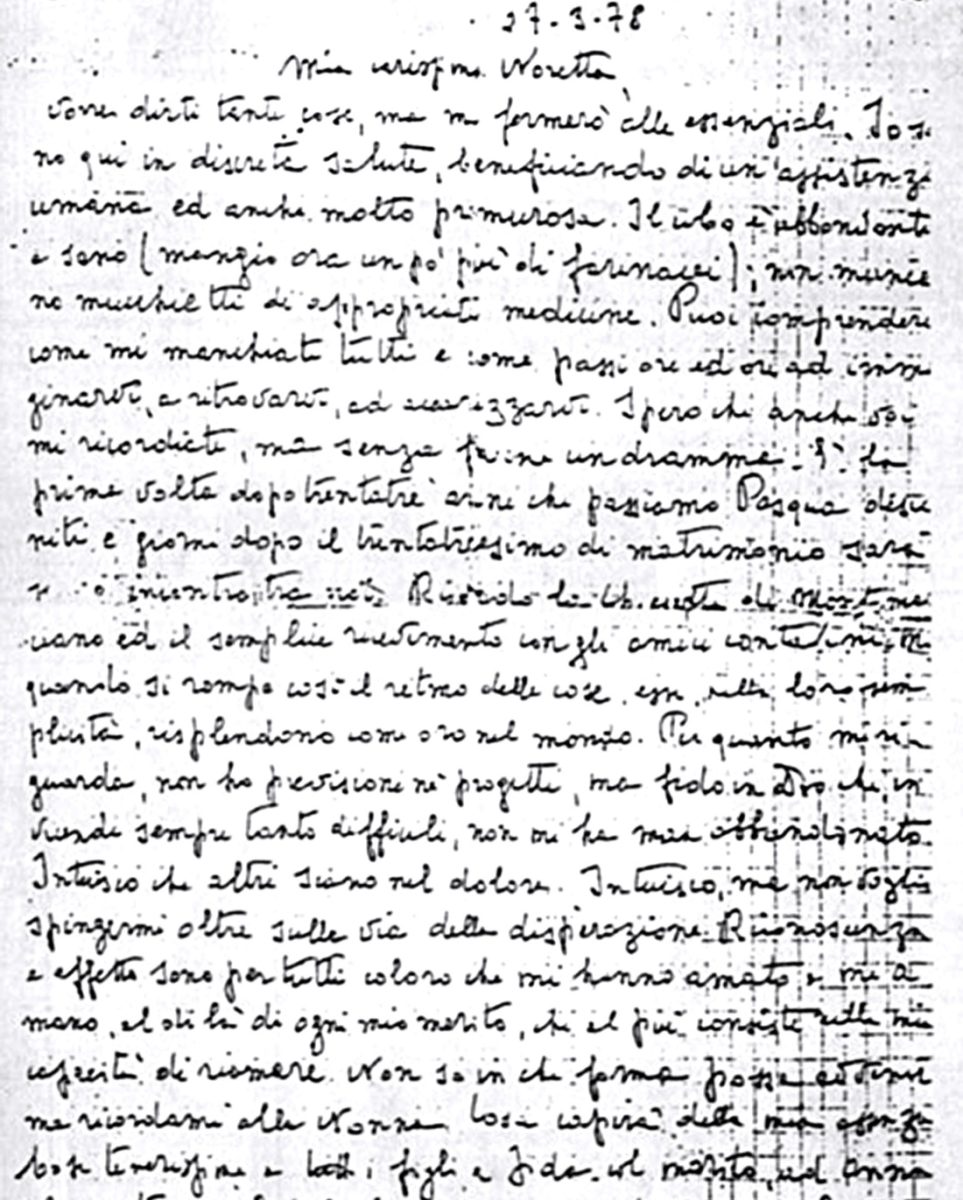 27-3-78
Mia carissima Noretta,
vorrei dirti tante cose, ma mi fermerò alle essenziali. Io so-
no qui in discreta salute, beneficiando di un'assistenza
umana ed anche molto premurosa. Il cibo è abbondante
e sano (mangio ora un po' più di farinacei); non manca
no mucchietti di appropriate medicine. Puoi comprendere
come mi manchiate tutti e come passi ore ed ore ad imma
ginarvi, a ritrovarvi, ad accarezzarvi. Spero che anche voi
mi ricordiate, ma senza farne un dramma. È la
prima volta dopo trentatre anni che passiamo Pasqua disu
niti e giorni dopo il trentatreesimo di matrimonio sarà
incontro tra noi. Ricordo la chiesetta di Montemar
ciano ed il semplice ricevimento con gli amici contadini. Ma
quando si rompe così il ritmo delle cose, esse, nella loro sem
plicità, risplendono come oro nel mondo. Per quanto mi ri
guarda, non ho previsioni nè progetti, ma fido in Dio che, in
vicende sempre tanto difficili, non mi ha mai abbandonato.
Intuisco che altri siano nel dolore. Intuisco, ma non voglio
spingermi oltre sulla via della disperazione. Riconoscenza
e affetto sono per tutti coloro che mi hanno amato e mi a
mano, al di là di ogni mio merito, che al più consiste nella mia
capacità di riamare. Non so in che forma possa avvenire
ma ricordami alla Nonna. Cosa capirà della mia assenza
Cose tenerissime a tutti i figli, a Fida col marito, ad Anna